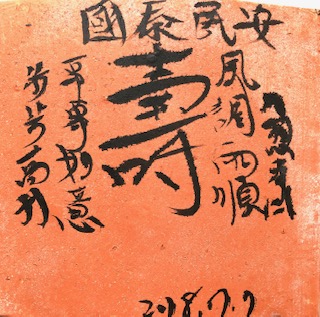 國泰民安
風調雨順
壽
平事如意
步步高升
2018.7.7